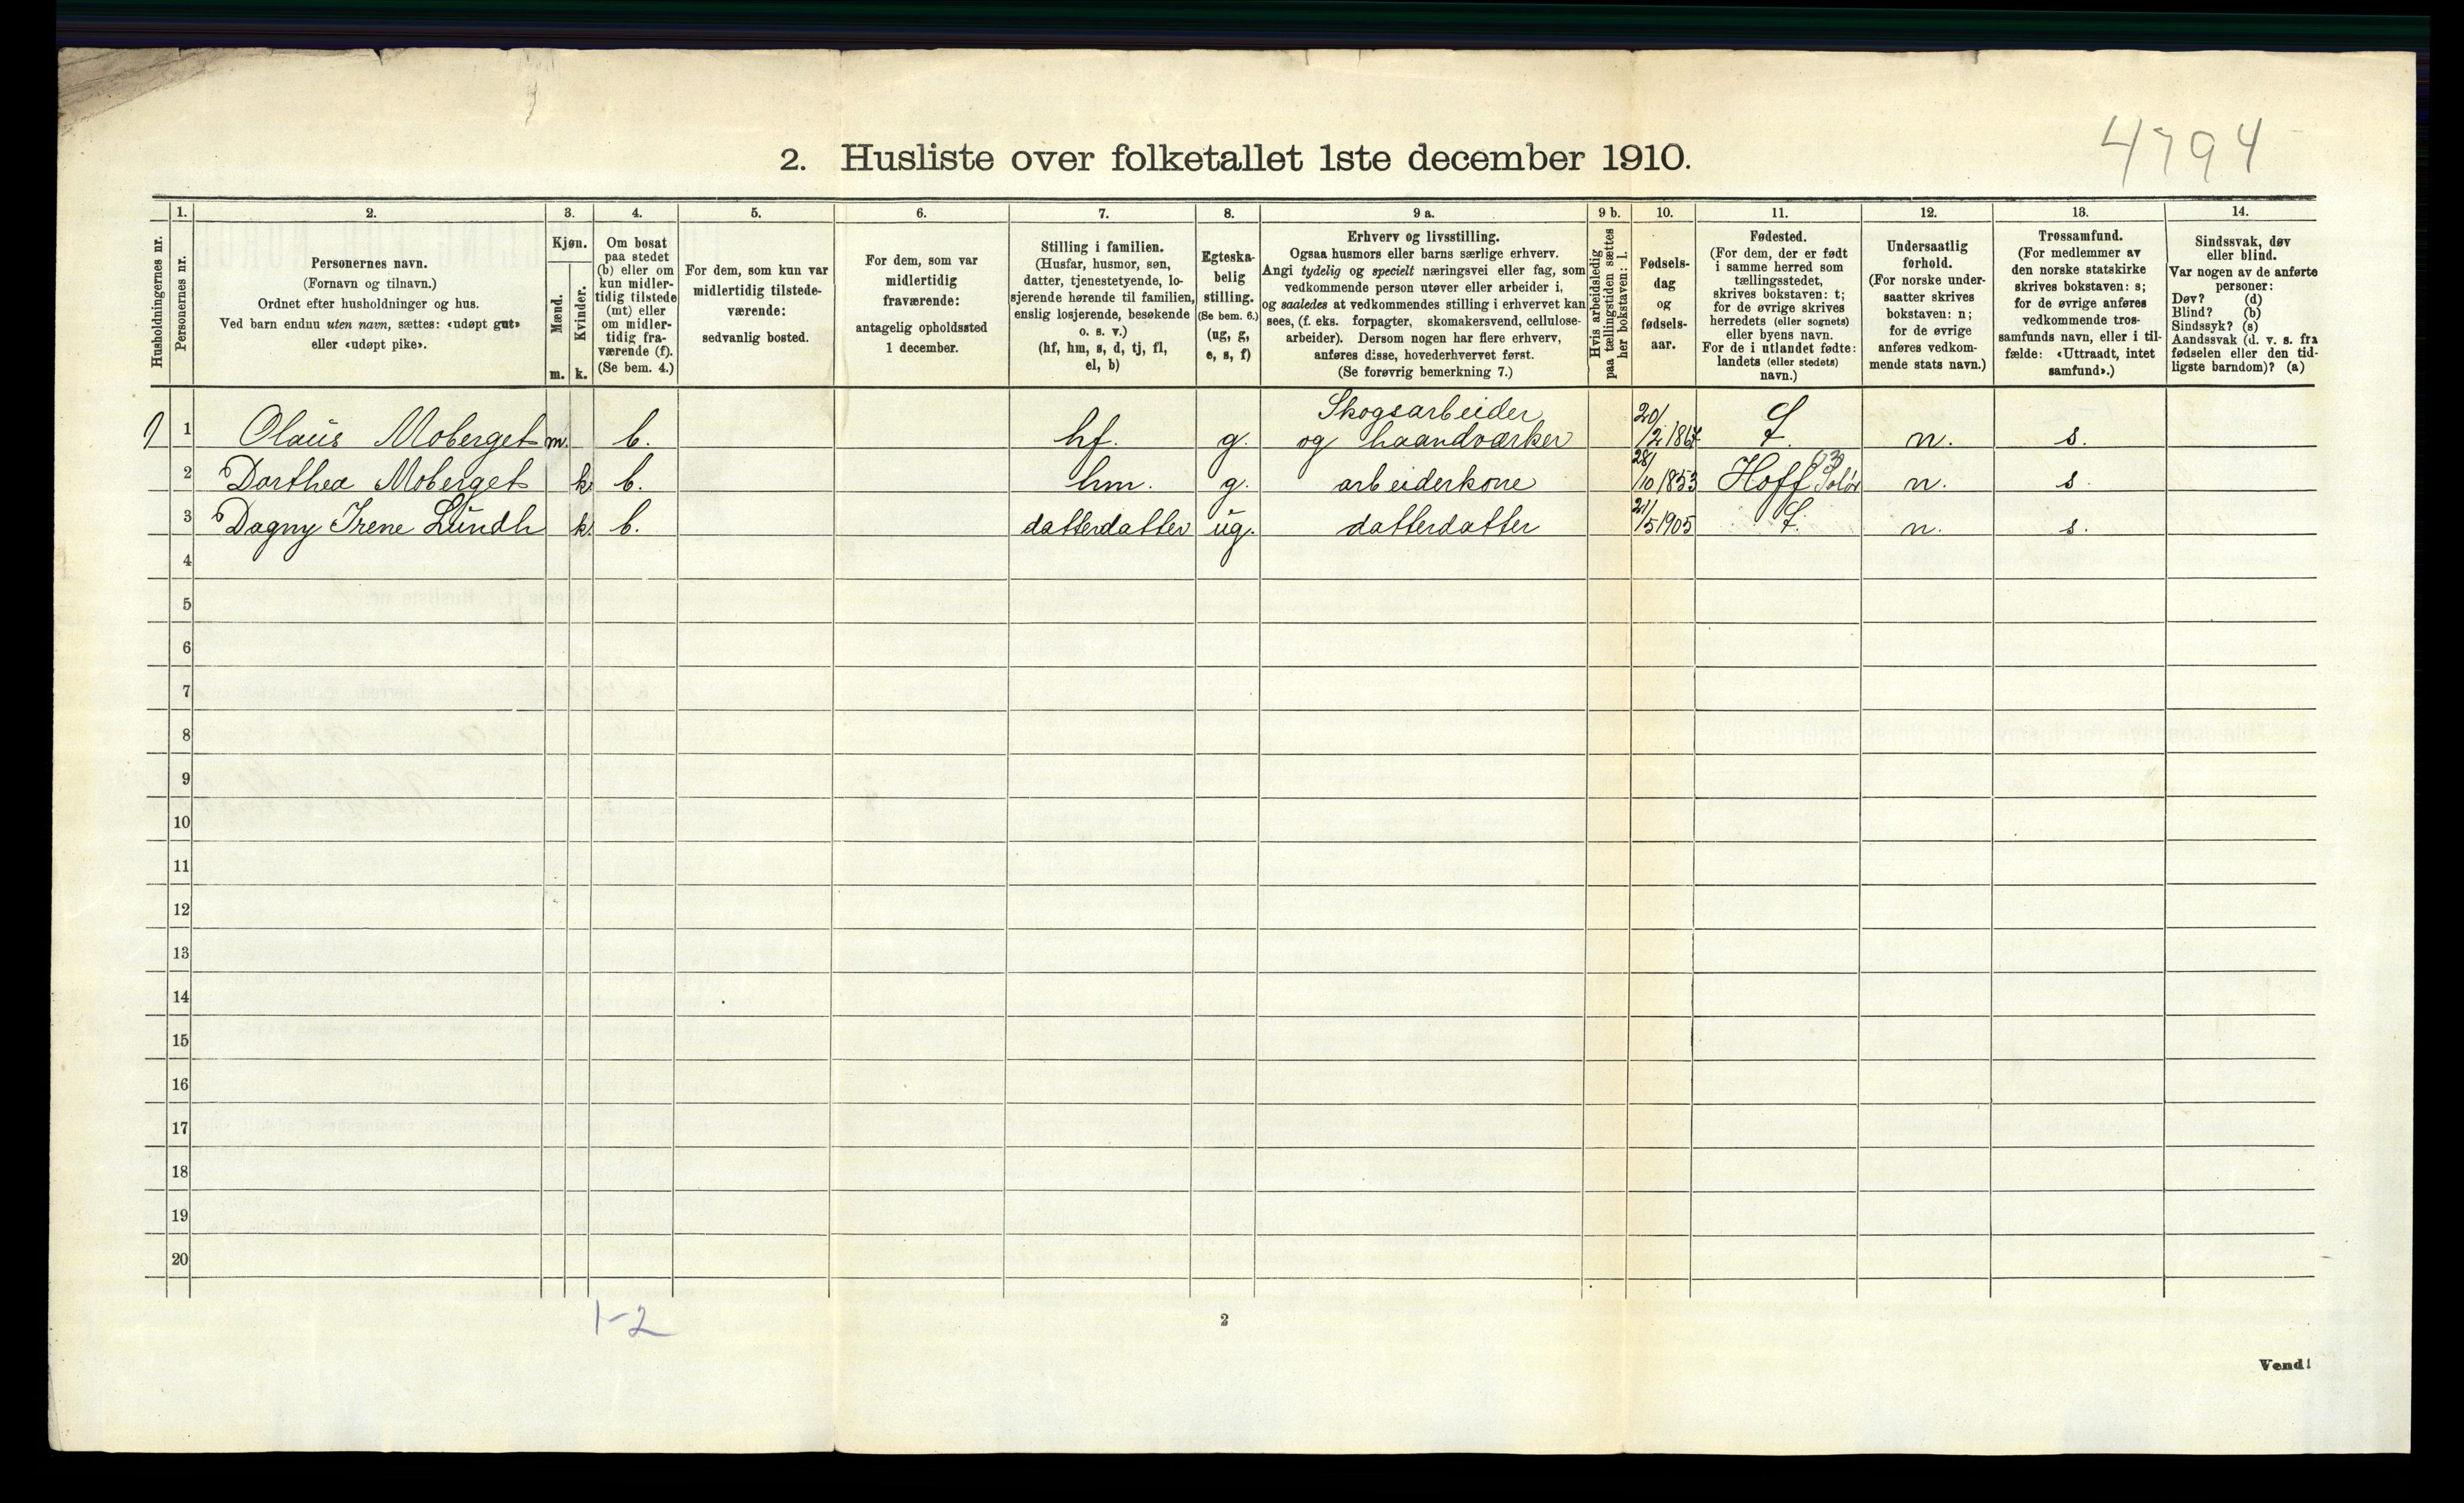 4794
2. Husliste over folketallet 1ste december 1910.
Husholdningernes nr.
1.
Personernes nr.
2.
Personernes navn.
(Fornavn og tilnavn.)
Ordnet efter husholdninger og hus.
Ved barn endnu uten navn, sættes: «udøpt gut»
eller «udøpt pike».
3.
Kjøn.
Mænd.
Kvinder.
m. k.
4.
Om bosat
paa stedet
(b) eller om
kun midler-
tidig tilstede
(mt) eller
om midler-
tidig fra-
værende (f).
(Se bem. 4.)
5.
For dem, som kun var
midlertidig tilstede-
værende:
sedvanlig bosted.
6.
For dem, som var
midlertidig
fraværende:
antagelig opholdssted
1 december.
7.
Stilling i familien.
(Husfar, husmor, søn,
datter, tjenestetyende, lo-
sjerende hørende til familien,
enslig losjerende, besøkende
o. s. v.)
(hf, hm, s, d, tj, fl,
el, b)
8.
Egteska-
belig
stilling.
(Se bem. 6.)
(ug, g,
e, s, f)
9 a.
Erhverv og livsstilling.
Ogsaa husmors eller barns særlige erhverv.
Angi tydelig og specielt næringsvei eller fag, som
vedkommende person utøver eller arbeider i,
og saaledes at vedkommendes stilling i erhvervet kan
sees, (f. eks. forpagter, skomakersvend, cellulose-
arbeider). Dersom nogen har flere erhverv,
anføres disse, hovederhvervet først.
(Se forøvrig bemerkning 7.)
9 b.
Hvis arbeidsledig
paa tællingstiden sættes
her bokstaven: l.
10.
Fødsels-
dag
og
fødsels-
aar.
11.
Fødested.
(For dem, der er født
i samme herred som
tællingsstedet,
skrives bokstaven: t;
for de øvrige skrives
herredets (eller sognets)
eller byens navn.
For de i utlandet fødte:
landets (eller stedets)
navn.)
12.
Undersaatlig
forhold.
(For norske under-
saatter skrives
bokstaven: n;
for de øvrige
anføres vedkom-
mende stats navn.)
13.
Trossamfund.
(For medlemmer av
den norske statskirke
skrives bokstaven: s;
for de øvrige anføres
vedkommende tros-
samfunds navn, eller i til-
fælde: «Uttraadt, intet
samfund».)
14.
Sindssvak, døv
eller blind.
Var nogen av de anførte
personer:
Døv? (d)
Blind? (b)
Sindssyk? (s)
Aandssvak (d. v. s. fra
fødselen eller den tid-
ligste barndom)? (a)
1 1 Olaus Moberget m. b. hf. g. Skogsarbeider
og haandværker 20/2 1867 t. n. s.
2 Dorthea Moberget k. b. hm. g. arbeiderkone 28/10 1853 Hoff Solør n. s.
3 Dagny Irene Lundh k. b. datterdatter ug. datterdatter 21/5 1905 t. n. s.
4
5
6
7
8
9
10
11
12
13
14
15
16
17
18
19
20
1-2
2
Vend!